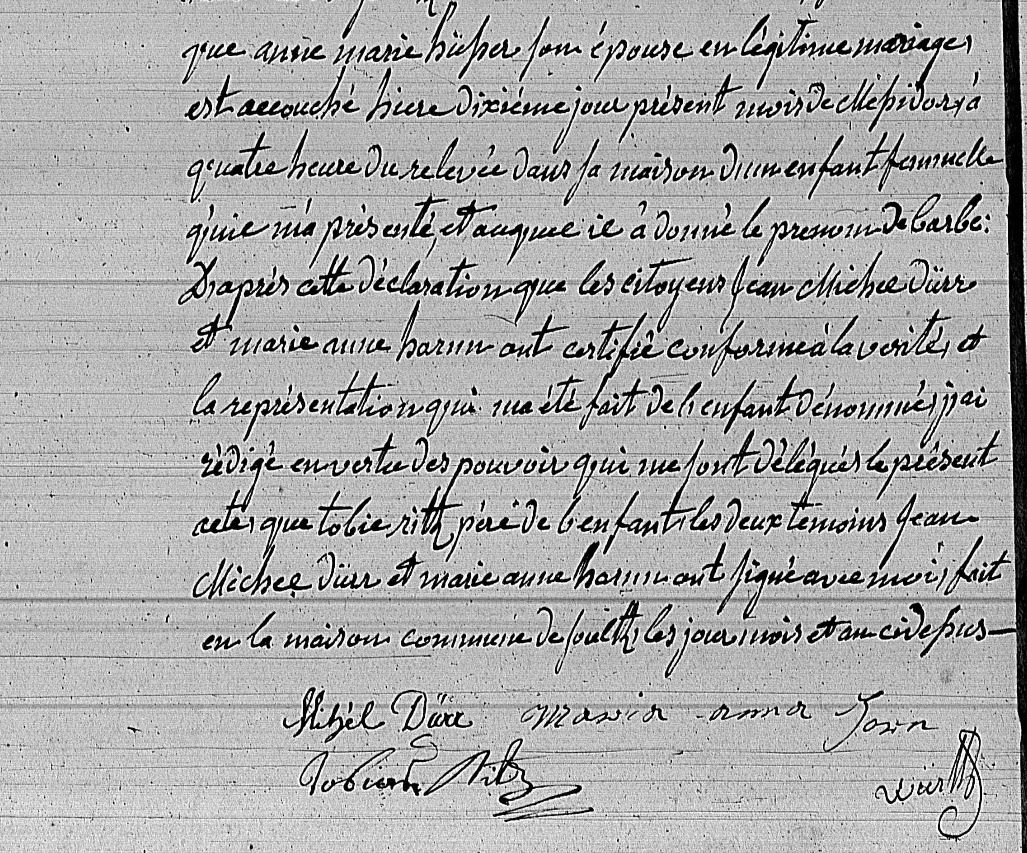 que anne marie hisper son épouse en légitime mariage,
est accouché hiere dixiéme jour présent mois de Messidor, à
quatre heure du relevée dans sa maison d'un enfant femmelle
qu'il m'a présenté, et auquel il à donné le prenom de barbe:
D'aprés cette déclaration que les citoyens Jean Michel Dürr
et marie anne hornn ont certifié conforme à la verité, et
la représentation qui ma été fait de l'enfant dénommé, j'ai
rédigé en vertu des pouvoir qui me sont délégués le présent
acte, que tobie ritz péré de l'enfant, les deux temoins Jean
Michel dürr et marie anne hornn ont signé avec moi, fait
en la maison commune de soultz, les jour mois et an cidesus
Mihel Dürr maria anna
Tobias Ritz